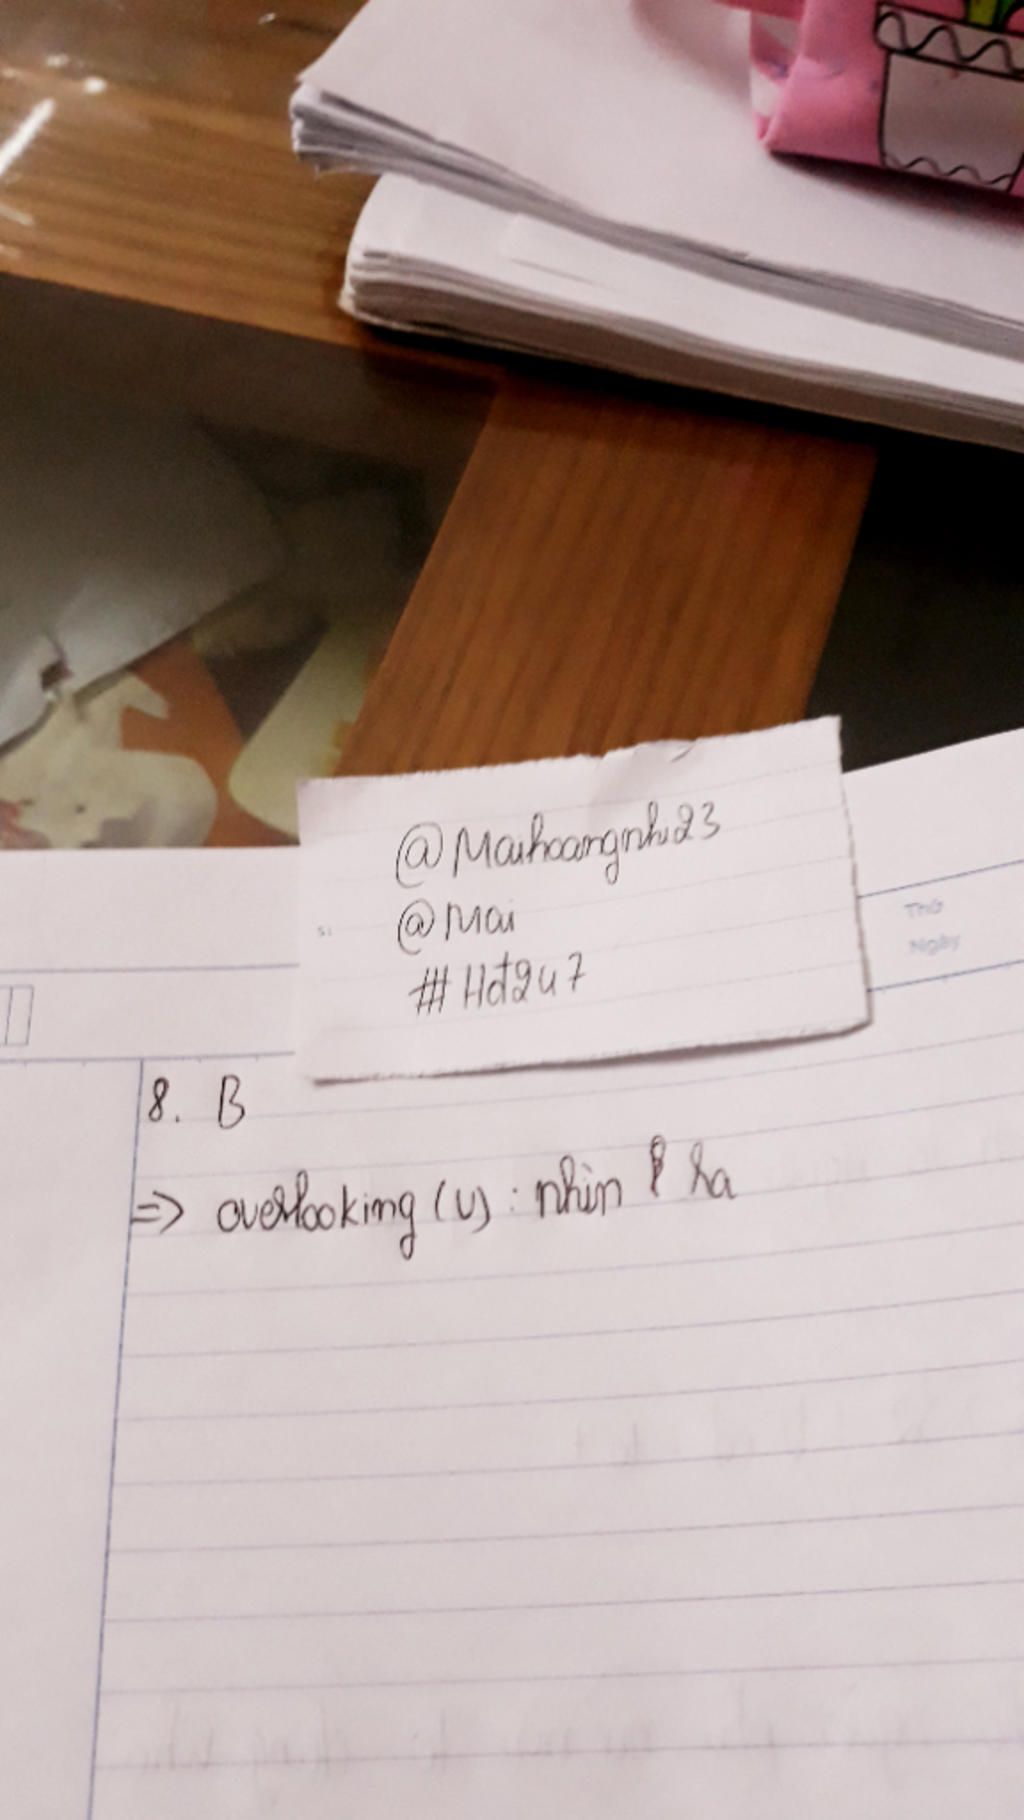 @Maihoangnhi23
@Mai
#Hđ247
Thứ
Ngày
8. B
=> overlooking (v): nhìn ra